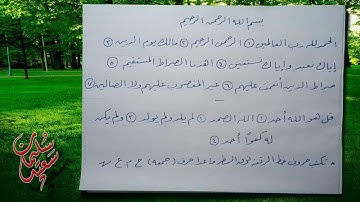 بسم الله الرحمن الرحيم
الحمد لله رب العالمين ١ الرحمن الرحيم ٢ مالك يوم الدين ٣
إياك نعبد وإياك نستعين ٤ اهدنا الصراط المستقيم ٥
صراط الذين أنعمت عليهم ٦ غير المغضوب عليهم ولا الضالين ٧
قل هو الله أحد ١ الله الصمد ٢ لم يلد ولم يولد ٣ ولم يكن
له كفوًا أحد ٤
تكتب حروف خط الرقعة فوق السطر ما عدا حروف
سليمان
سعيد